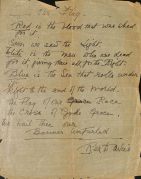 The Flag.
Red is the blood that was shed
for it.
Soon we saw the Light.
White is the men who are dead
for it, giving their all for the Right.
Blue is the sea that rolls under
it
Right to the end of the World.
The Flag of our Race
The Cross of God's Grace.
We hail thee our
Banner Unfurled